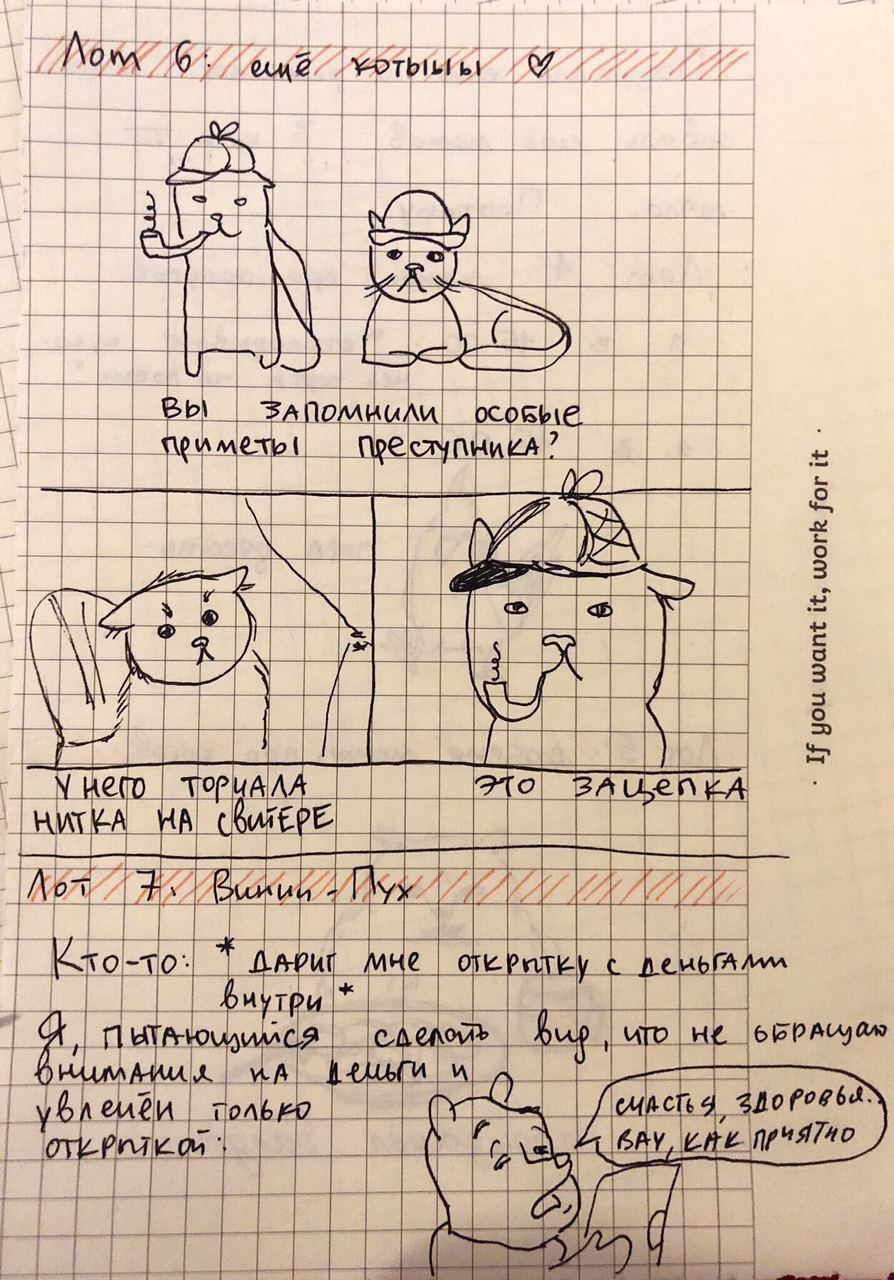 Лот 6: ещё котыыы ♡
ВЫ ЗАПОМНИЛИ ОСОБЫЕ
ПРИМЕТЫ ПРЕСТУПНИКА?
У НЕГО ТОРЧАЛА
НИТКА НА СВИТЕРЕ
ЭТО ЗАЦЕПКА
Лот 7. Винни-Пух
Кто-то: * ДАРИТ МНЕ ОТКРЫТКУ С ДЕНЬГАМИ
внутри *
Я, ПЫТАЮЩИЙСЯ сделать вид, что не ОБРАЩАЮ
ВНИМАНИЯ НА ДЕНЬГИ И
УВЛЕЧЁН ТОЛЬКО
ОТКРЫТКОЙ:
СЧАСТЬЯ, ЗДОРОВЬЯ..
ВАУ, КАК ПРИЯТНО
· If you want it, work for it ·